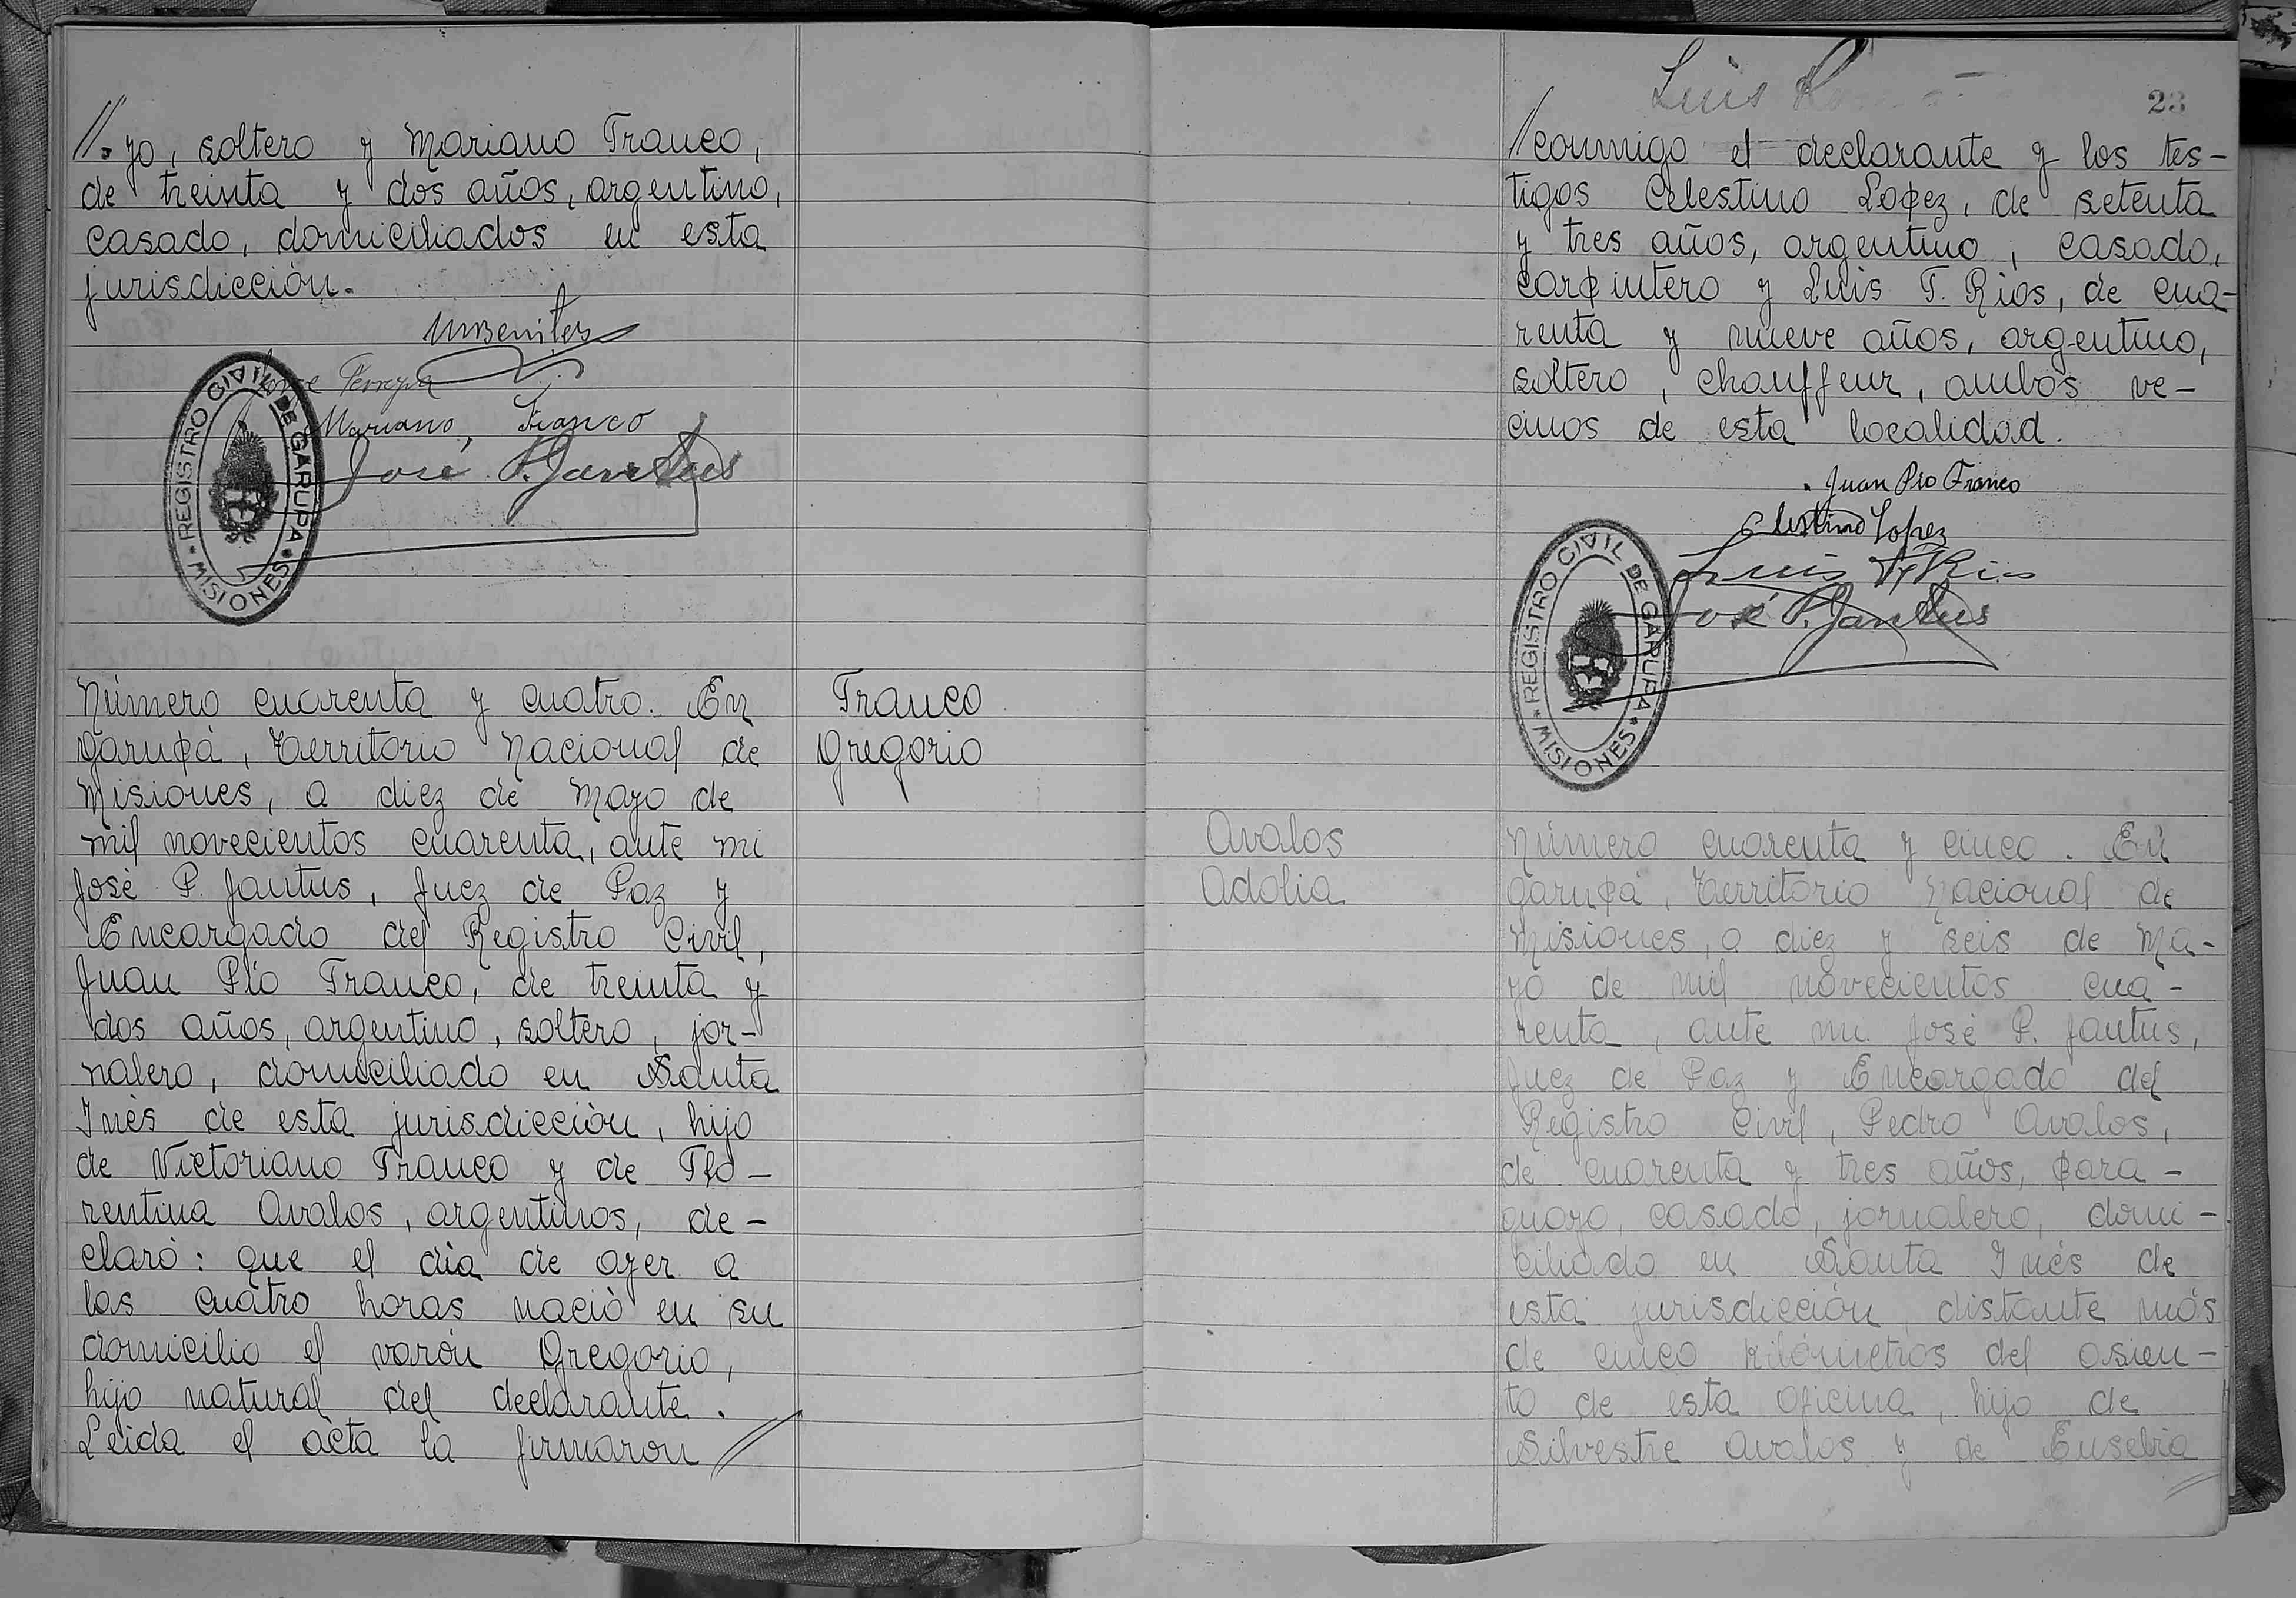 //. yo, soltero y Mariano Franco,
de treinta y dos años, argentino,
casado, domiciliados en esta
jurisdicción.
MBenites
Jorge Ferreyra
Mariano, Franco
José P. Jantus
REGISTRO CIVIL DE GARUPA
* MISIONES *
Número cuarenta y cuatro. En
Garupá, Territorio Nacional de
Misiones, a diez de Mayo de
mil novecientos cuarenta, ante mi
José P. Jantus, Juez de Paz y
Encargado del Registro Civil,
Juan Pío Franco, de treinta y
dos años, argentino, soltero, jor-
nalero, domiciliado en Santa
Inés de esta jurisdicción, hijo
de Victoriano Franco y de Flo-
rentina Avalos, argentinos, de-
claró: que el día de ayer a
las cuatro horas nació en su
domicilio el varón Gregorio,
hijo natural del declarante.
Leída el acta la firmaron //
Franco
Gregorio
Luis
23
/conmigo el declarante y los tes-
tigos Celestino Lopez, de setenta
y tres años, argentino, casado,
carpintero y Luis F. Rios, de cua-
renta y nueve años, argentino,
soltero, chauffeur, ambos ve-
cinos de esta localidad.
Juan Pio Franco
Celestino Lopez
Luis F. Rios
José P. Jantus
REGISTRO CIVIL DE GARUPA
* MISIONES *
Avalos
Adolia
Número cuarenta y cinco. En
Garupá, Territorio Nacional de
Misiones, a diez y seis de Ma-
yo de mil novecientos cua-
renta, ante mi José P. Jantus,
Juez de Paz y Encargado del
Registro Civil, Pedro Avalos,
de cuarenta y tres años, para-
guayo, casado, jornalero, domi-
ciliado en Santa Inés de
esta jurisdicción, distante más
de cinco kilómetros del asien-
to de esta oficina, hijo de
Silvestre Avalos y de Eusebia
//